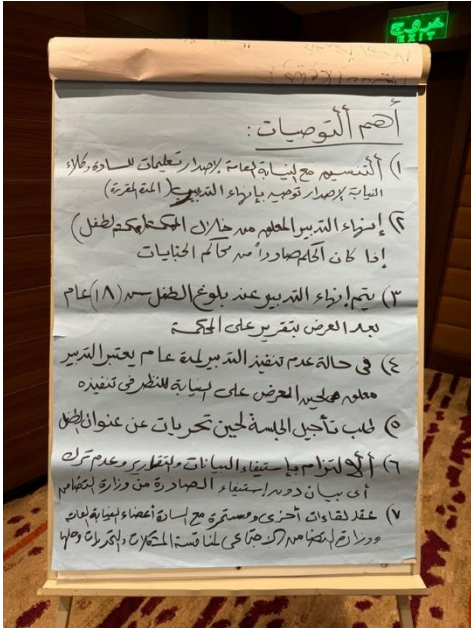 خروج
EXIT
أهم ألتوصيات :
١) ألتنسيق مع النيابة العامة لإصدار تعليمات للسادة وكلاء
النيابة لإصدار توصيه بإنهاء التدبير ( المدة المقررة)
٢) إنهاء التدبير المعلق من خلال المحكمة (محكمة لطفل)
إذا كان الحكم صادراً من محاكم الجنايات
٣) يتم إنهاء التدبير عند بلوغ الطفل سن (١٨) عام
بعد العرض بتقرير على المحكمة
٤) فى حالة عدم تنفيذ التدبير لمدة عام يعتبر التدبير
معلق لحين العرض على النيابة للنظر فى تنفيذه
٥) طلب تأجيل الجلسة لحين تحريات عن عنوان الطفل
٦) ألالتزام بإستيفاء البيانات والتقارير وعدم ترك
أى بيان دون إستيفاء الصادرة من وزارة التضامن
٧) عقد لقاءات أخرى ومستمرة مع السادة أعضاء النيابة العامة
ووزارة التضامن الاجتماعى لمناقشة المشكلات والتحديات وحلها